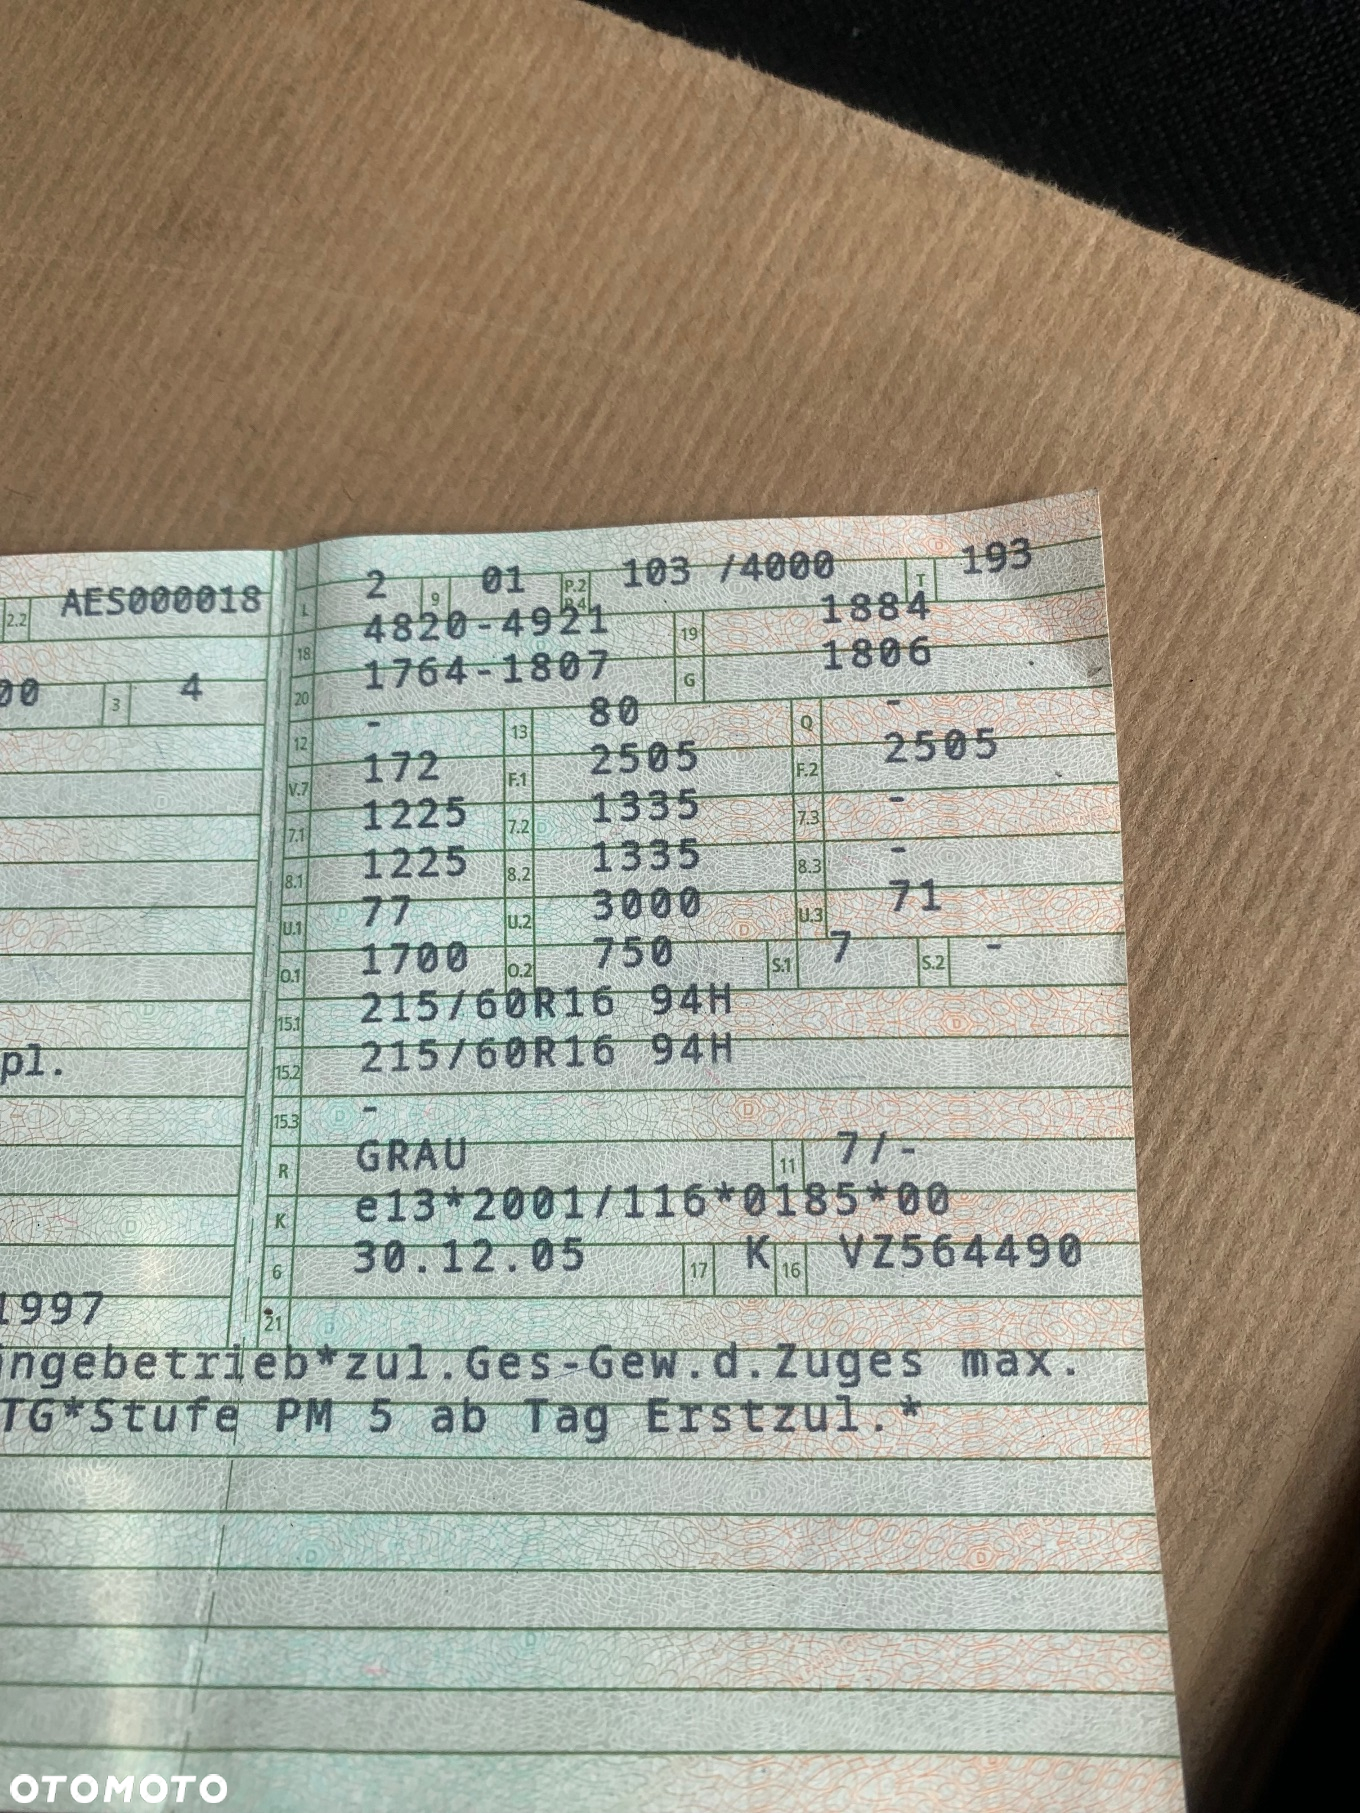 2.2 AES000018 L 2 9 01 P.2 P.4 103 /4000 T 193
18 4820-4921 19 1884
00 3 4 20 1764-1807 G 1806
12 - 13 80 Q -
V.7 172 F.1 2505 F.2 2505
7.1 1225 7.2 1335 7.3 -
8.1 1225 8.2 1335 8.3 -
U.1 77 U.2 3000 U.3 71
O.1 1700 O.2 750 S.1 7 S.2 -
15.1 215/60R16 94H
pl. 15.2 215/60R16 94H
15.3 -
R GRAU 11 7/-
K e13*2001/116*0185*00
6 30.12.05 17 K 16 VZ564490
1997 21
ingebetrieb*zul.Ges-Gew.d.Zuges max.
TG*Stufe PM 5 ab Tag Erstzul.*
OTOMOTO